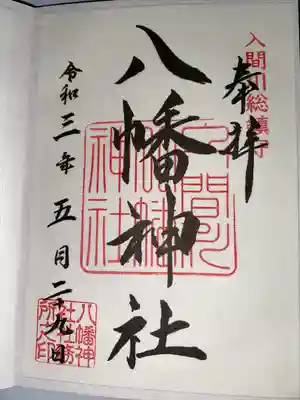 入間川総鎮守
奉拝
八幡神社
令和三年五月二十九日
八幡神
社社務
所之印